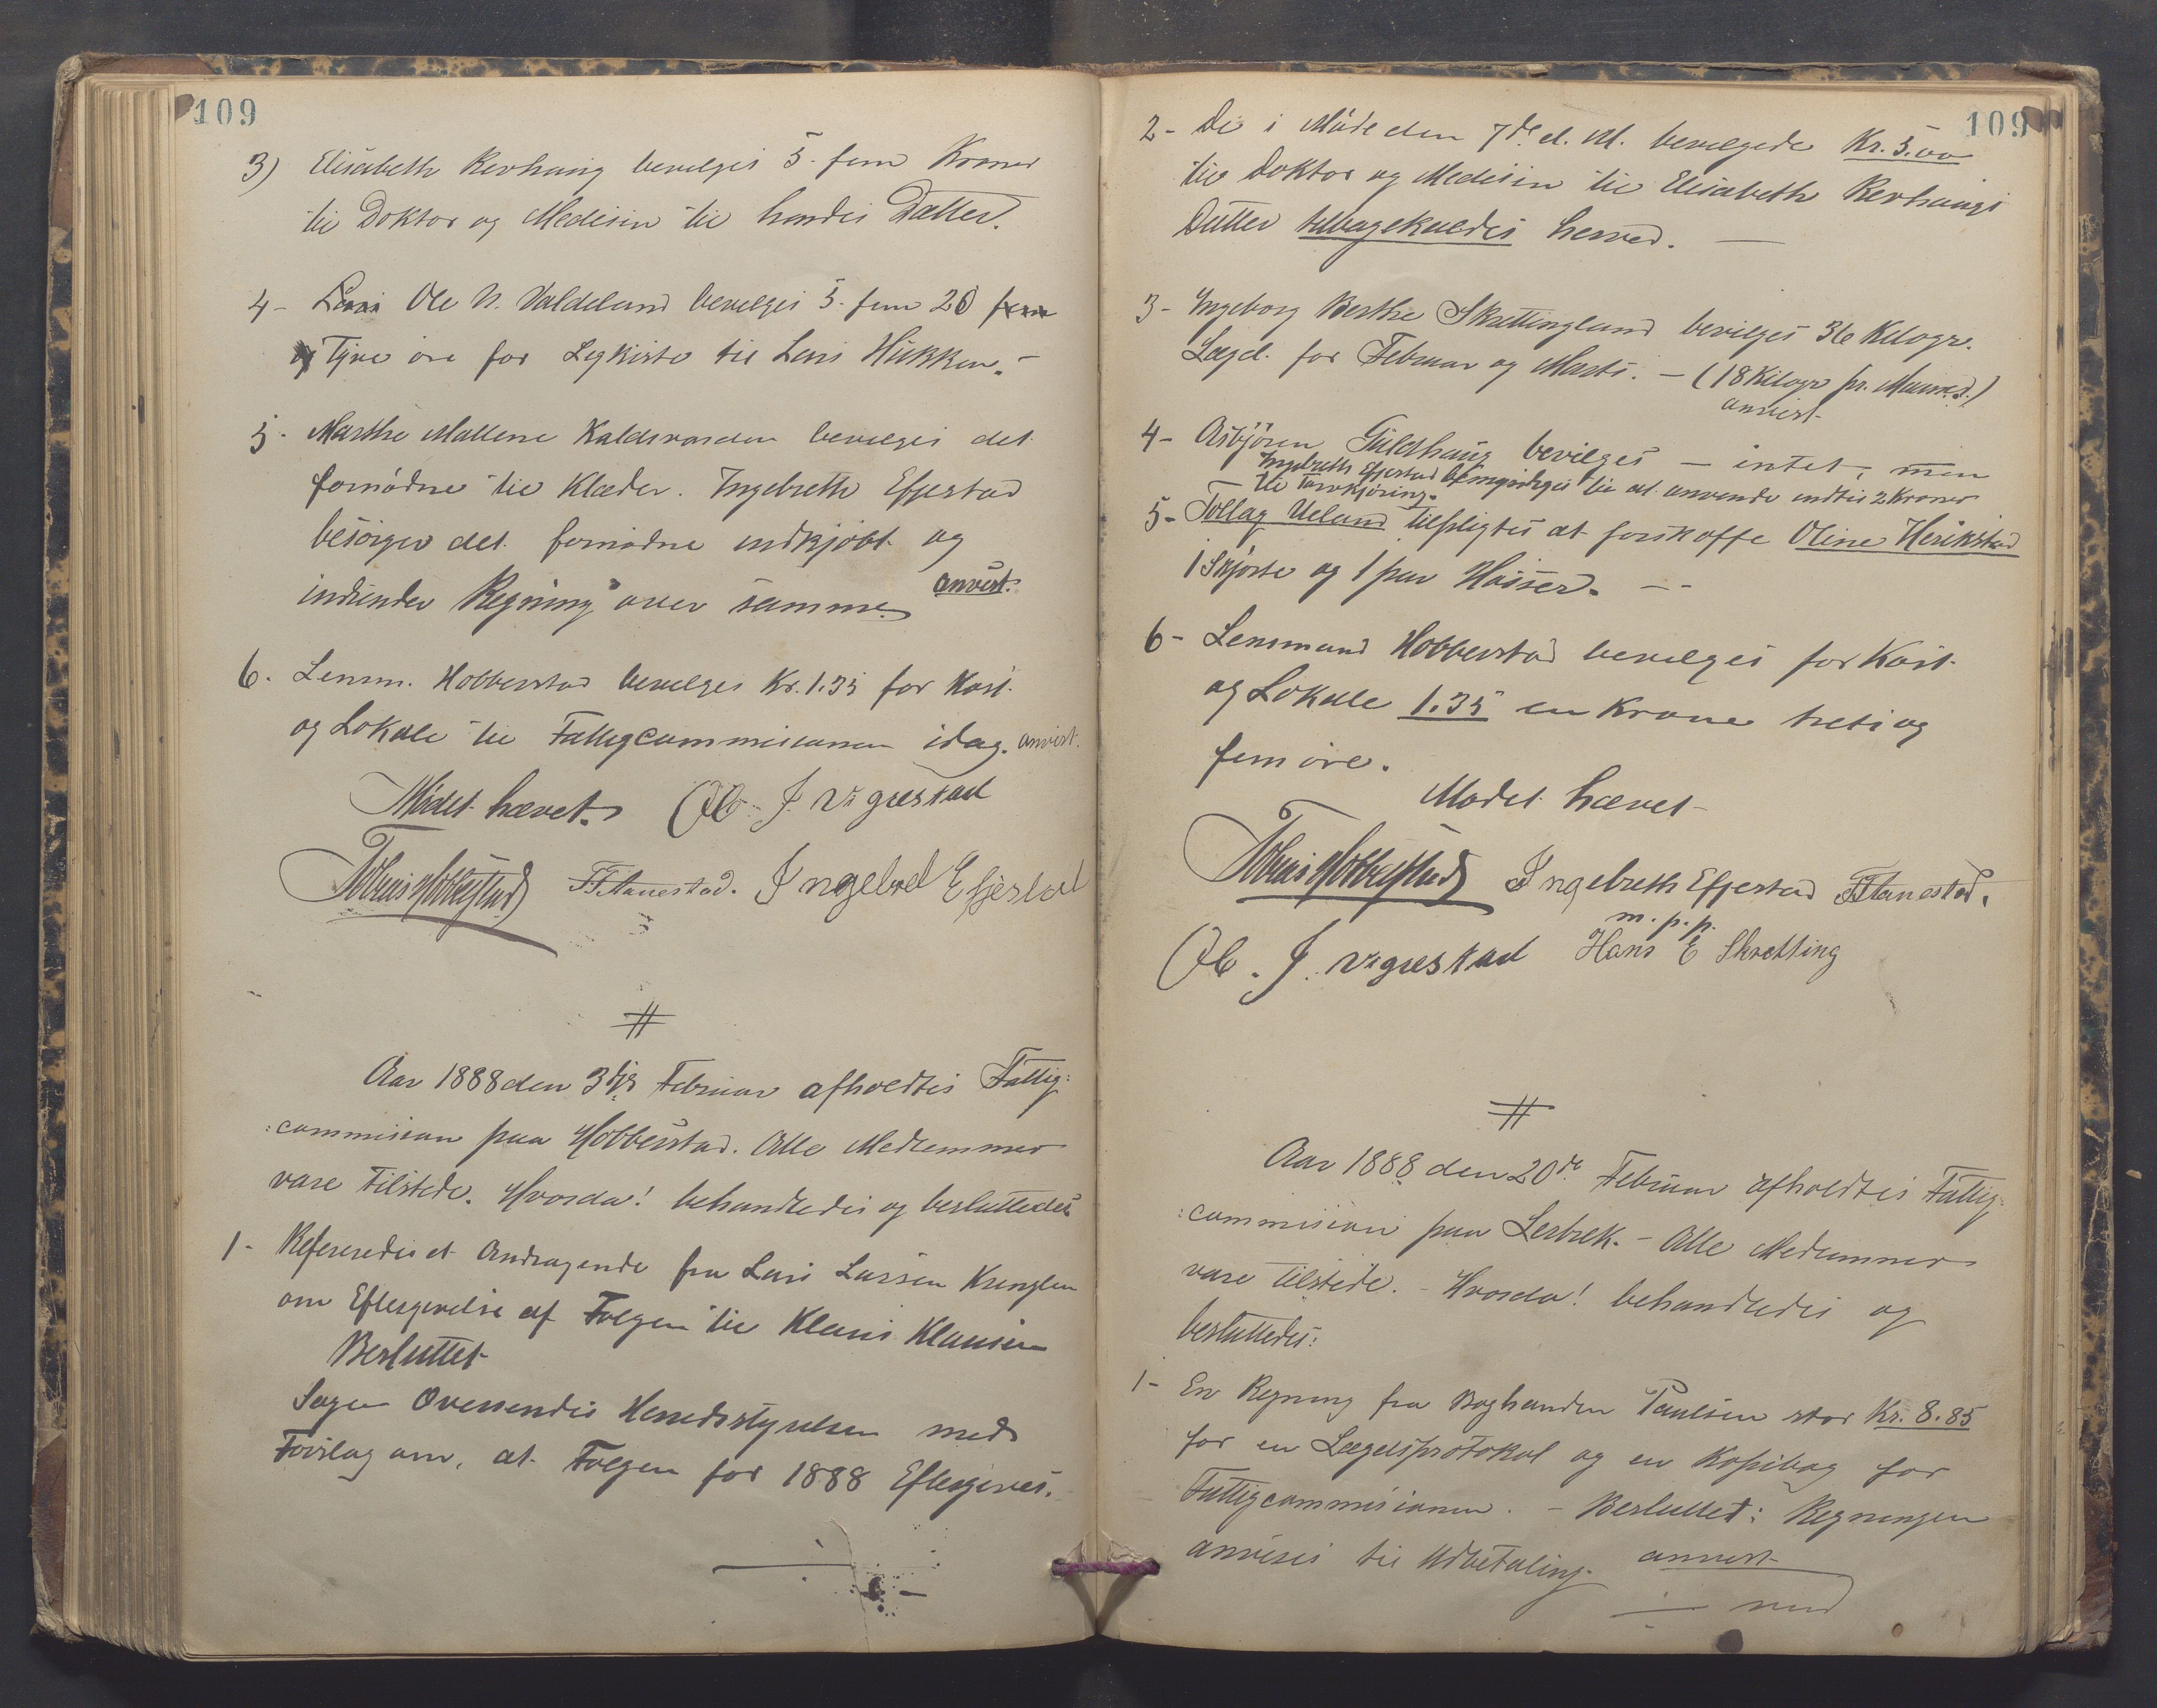 109
3) Elisabeth Revhaug bevelges 5 - fem Kroner
til Doktor og Medisin til hendes Datter.
4 - Lars Ole N. Valdeland bevelges 5 - fem 20 fem
og Tyve öre for Legkiste til Lars Hukken. -
5 - Marthe Mallene Kaldsvarden bevelges det
fornödne til Klæder. Ingebreth Efjestad
besörger det fornödne indkjöbt og
indsender Regning over samme. anvist.
6. Lensm. Hobberstad bevelges Kr. 1.35 for Kost
og Lokale til Fattigcommisionen idag. anvist.
Mödet hævet. Ol. J. Vigrestad
Tobias Hobberstad T. Tanestad. Ingebret Efjestad
#
Aar 1888 den 3dje Februar afholdtes Fattig:
:commision paa Hobberstad. Alle Medlemmer
vare tilstede. Hvorda! behandledes og besluttedes
1 - Refereredes et Andragende fra Lars Larsen Krenglen
om Eftergivelse af Følgen til Klaus Klausen
Besluttet
Sagen Oversendes Herredsstyrelsen med
Forslag om, at Følgen for 1888 Eftergives.
109
2 - De i Möde den 7de d. M. bevelgede Kr. 5.00
til Doktor og Medisin til Elisabeth Revhaugs
Datter tilbagekaldes herved. —
3 - Ingeborg Berthe Skrettingland bevilges 36 Kilogr.
Lægd. for Februar og Marts. - (18 Kilogr pr. Maaned.)
anvist
4 - Asbjören Guldhaug bevilges - intet, men
Ingebreth Efjestad bemyndiges til at anvende indtil 2 Kroner
til Torvkjöring.
5 - Tollag Ueland tilpligtes at forskaffe Oline Herikstad
1 Skjorte og 1 par Hoser. - -
6 - Lensmand Hobberstad bevelges for Kost
og Lokale 1.35 en Krone treti og
fem öre.
Mödet hævet
Tobias Hobberstad Ingebreth Efjestad T. Tanestad.
m. p. p.
Ol. J. Vigrestad Hans E Skretting
#
Aar 1888 den 20de Februar afholdtes Fattig:
:commision paa Lerbrek. - Alle Medlemmer
vare tilstede. - Hvorda! behandledes og
besluttedes:
1 - En Regning fra Boghandler Paulsen stor Kr. 8.85
for en Lægdsprotokol og en Kopibog for
Fattigcommisionen. - Besluttet: Regningen
anvises til Udbetaling. anvist